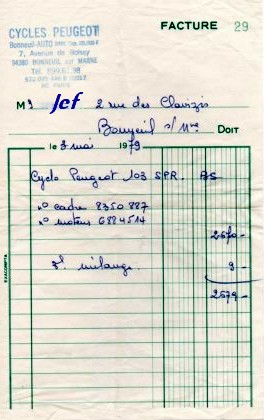 CYCLES PEUGEOT
FACTURE 29
Bonneuil-AUTO
7, Avenue de Boissy
94380 BONNEUIL sur MARNE
M Jcf 2 rue des Clavizis
Bonneuil s/Mne DOIT
le 3 mai 1979
Cyclo Peugeot 103 SPR. BS
n° cadre 8350887
n° moteur 6884514
2670 -
3l mélange. 9 -
2679 -
EXACOMPTA